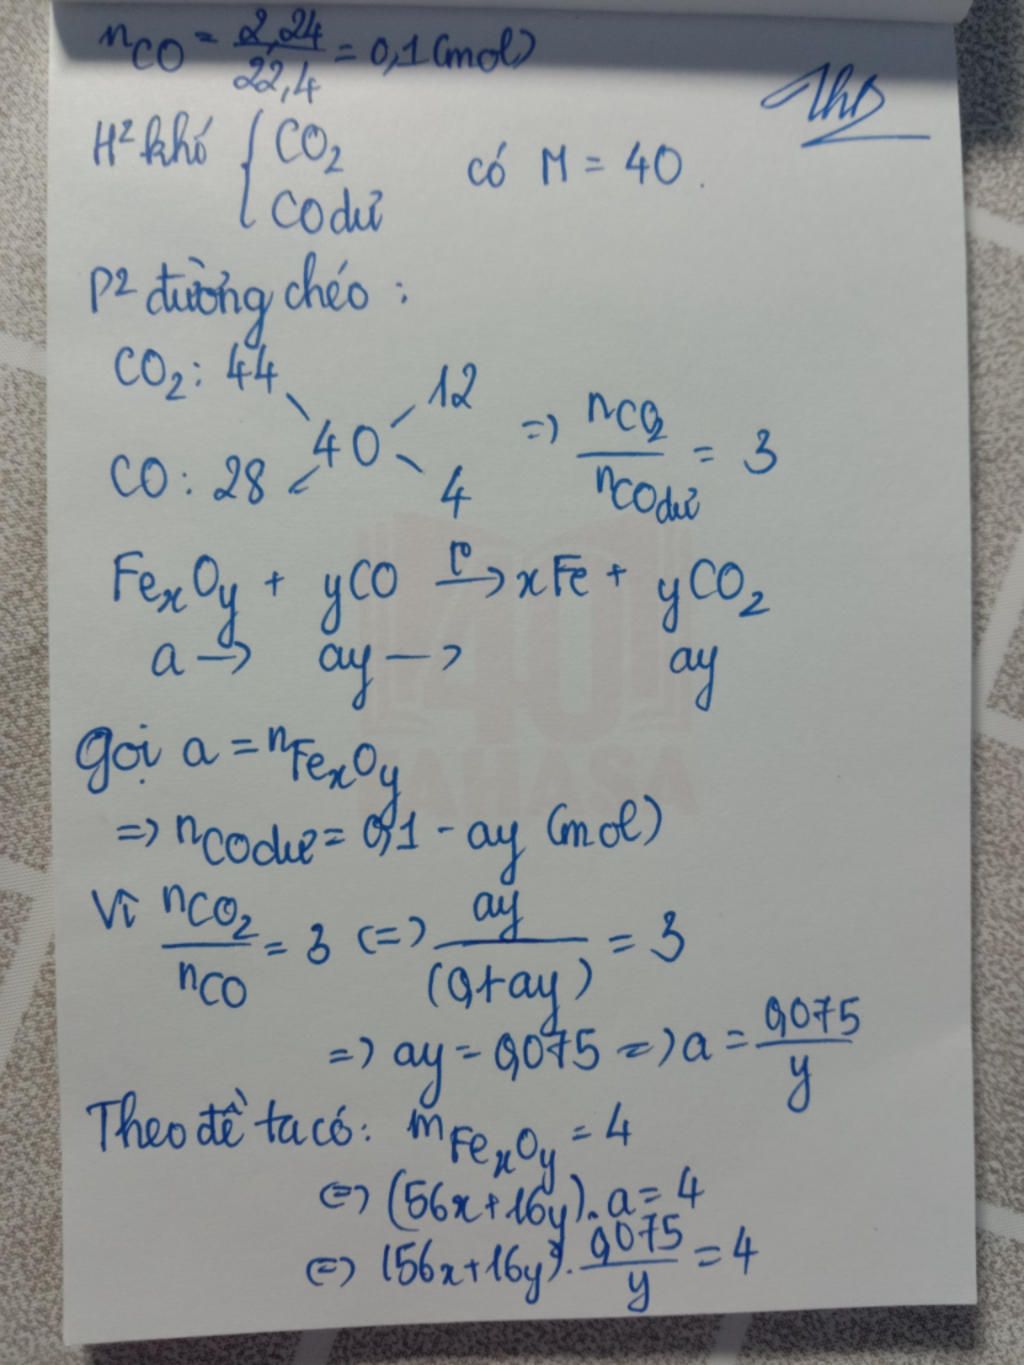 nCO = 2,24/22,4 = 0,1 (mol)
ThD
H² khí { CO₂ có M = 40.
CO dư
P² đường chéo :
CO₂: 44 12
40 => nCO₂/nCO dư = 3
CO: 28 4
FeₓOy + yCO t° → xFe + yCO₂
a → ay → ay
gọi a = nFeₓOy
=> nCO dư = 0,1 - ay (mol)
Vì nCO₂/nCO = 3 <=> ay/(0,1-ay) = 3
=> ay = 0,075 => a = 0,075/y
Theo đề ta có: mFeₓOy = 4
<=> (56x+16y).a = 4
<=> (56x+16y).0,075/y = 4
40
BAHASA